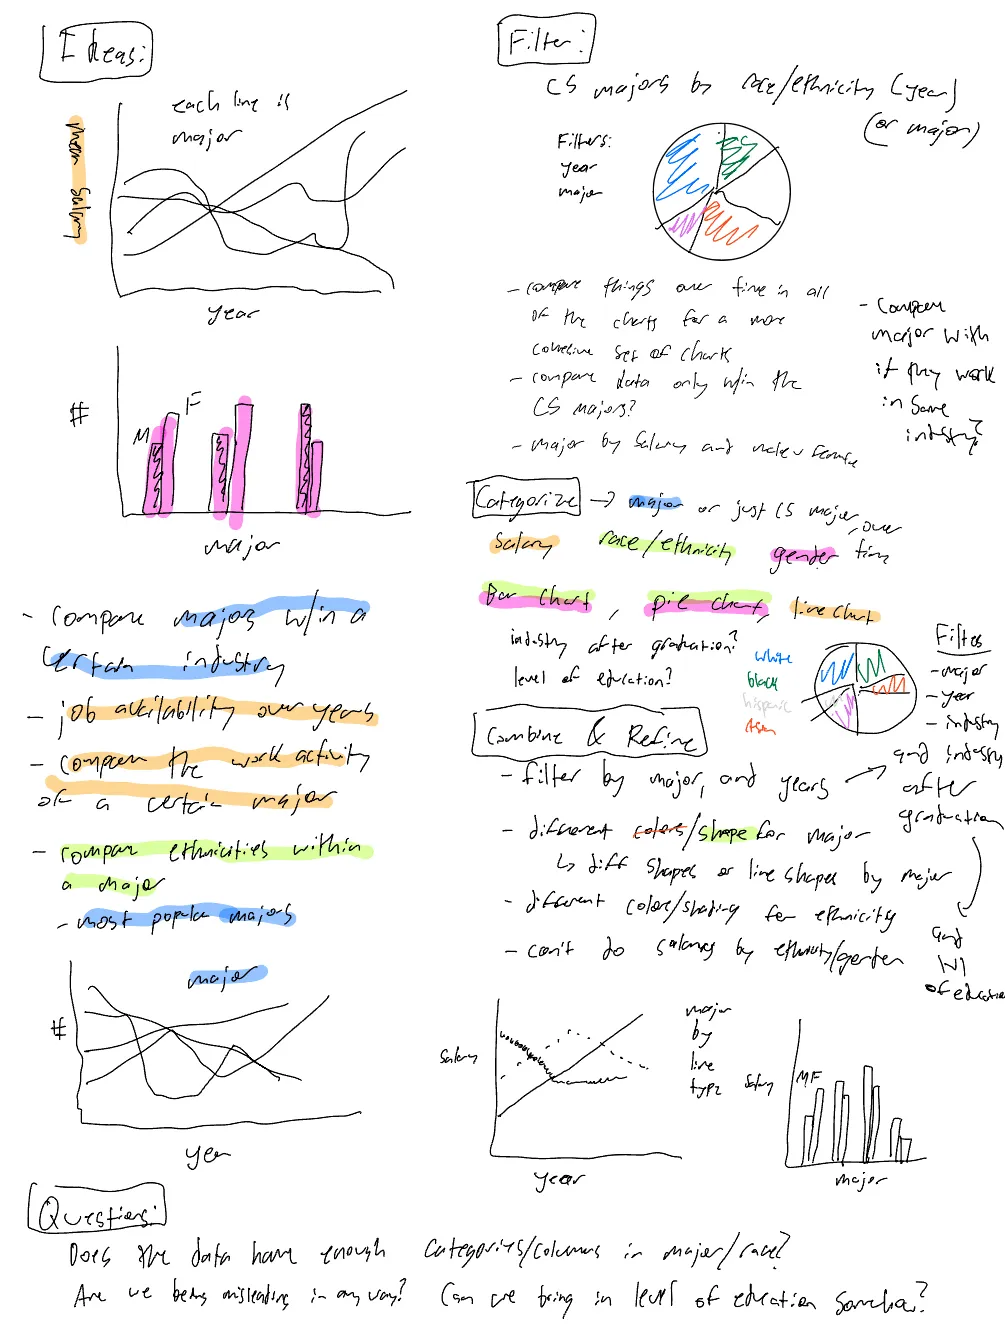 Ideas:
each line is
major
mean salary
year
#
M
F
major
- compare majors w/in a
certain industry
- job availability over years
- compare the work activity
of a certain major
- compare ethnicities within
a major
- most popular majors
major
#
year
Filter:
CS majors by race/ethnicity (year)
(or major)
Filters:
year
major
- compare things over time in all
of the charts for a more
cohesive set of charts
- compare data only w/in the
CS majors?
- major by salary and male v female
- Compare
major with
if they work
in same
industry?
Categorize → major or just CS major, over
time
salary race/ethnicity gender
Bar Chart, pie chart, line chart
industry after graduation?
level of education?
white
black
hispanic
Asian
Filters
- major
- year
- industry
Combine & Refine
- filter by major, and years → and industry
after
graduation
and
lvl
of education
- different colors/shape for major
↳ diff shapes or line shapes by major
- different colors/shading for ethnicity
- can't do salaries by ethnicity/gender
salary
year
major
by
line
type
salary
MF
major
Questions:
Does the data have enough categories/columns in major/race?
Are we being misleading in any way? Can we bring in level of education somehow?